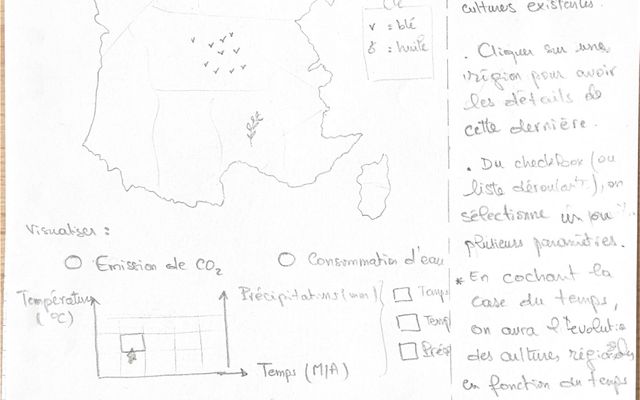 Clé
v = blé
= huile
Visualiser :
Emission de CO₂
Consommation d'eau
Température
(°C)
Précipitations (mm)
Temps (M/A)
Temps
Temp
Préc
cultures existantes.
. Cliquer sur une
région pour avoir
les détails de
cette dernière.
. Du checkbox (ou
liste déroulante), on
sélectionne un ou
plusieurs paramètres.
* En cochant la
case du temps,
on aura l'évolution
des cultures régionales
en fonction du temps